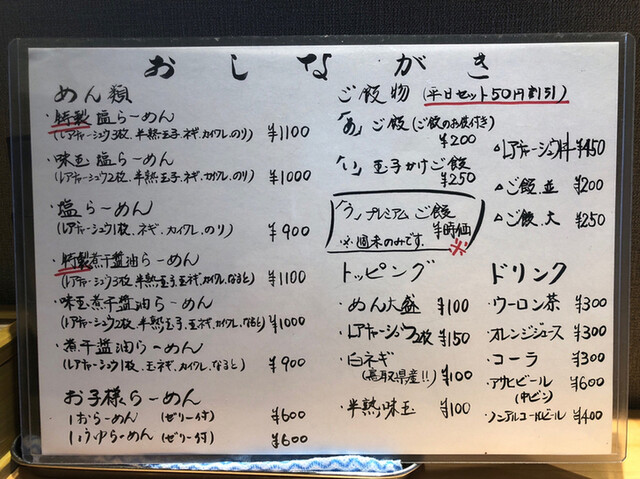 おしながき
めん類
・特製 塩らーめん
(レアチャーシュウ3枚、半熟玉子、ネギ、カイワレ、のり) ¥1100
・味玉 塩らーめん
(レアチャーシュウ2枚、半熟玉子、ネギ、カイワレ、のり) ¥1000
・塩らーめん
(レアチャーシュウ1枚、ネギ、カイワレ、のり) ¥900
・特製煮干醤油らーめん
(レアチャーシュウ3枚、半熟玉子、玉ネギ、カイワレ、なると) ¥1100
・味玉煮干醤油らーめん
(レアチャーシュウ2枚、半熟玉子、玉ネギ、カイワレ、なると) ¥1000
・煮干醤油らーめん
(レアチャーシュウ1枚、玉ネギ、カイワレ、なると) ¥900
お子様らーめん
しおらーめん (ゼリー付) ¥600
しょうゆらーめん (ゼリー付) ¥600
ご飯物 (平日セット50円割引)
「あ」ご飯 (ご飯のお供付き)
¥200
「い」玉子かけご飯
¥250
「う」プレミアムご飯
¥時価
※週末のみです。 ※
△レアチャーシュウ丼 ¥450
△ご飯、並 ¥200
△ご飯、大 ¥250
トッピング
・めん大盛 ¥100
・レアチャーシュウ2枚 ¥150
・白ネギ
(鳥取県産!!) ¥100
・半熟味玉 ¥100
ドリンク
・ウーロン茶 ¥300
・オレンジジュース ¥300
・コーラ ¥300
・アサヒビール ¥600
(中ビン)
・ノンアルコールビール ¥400